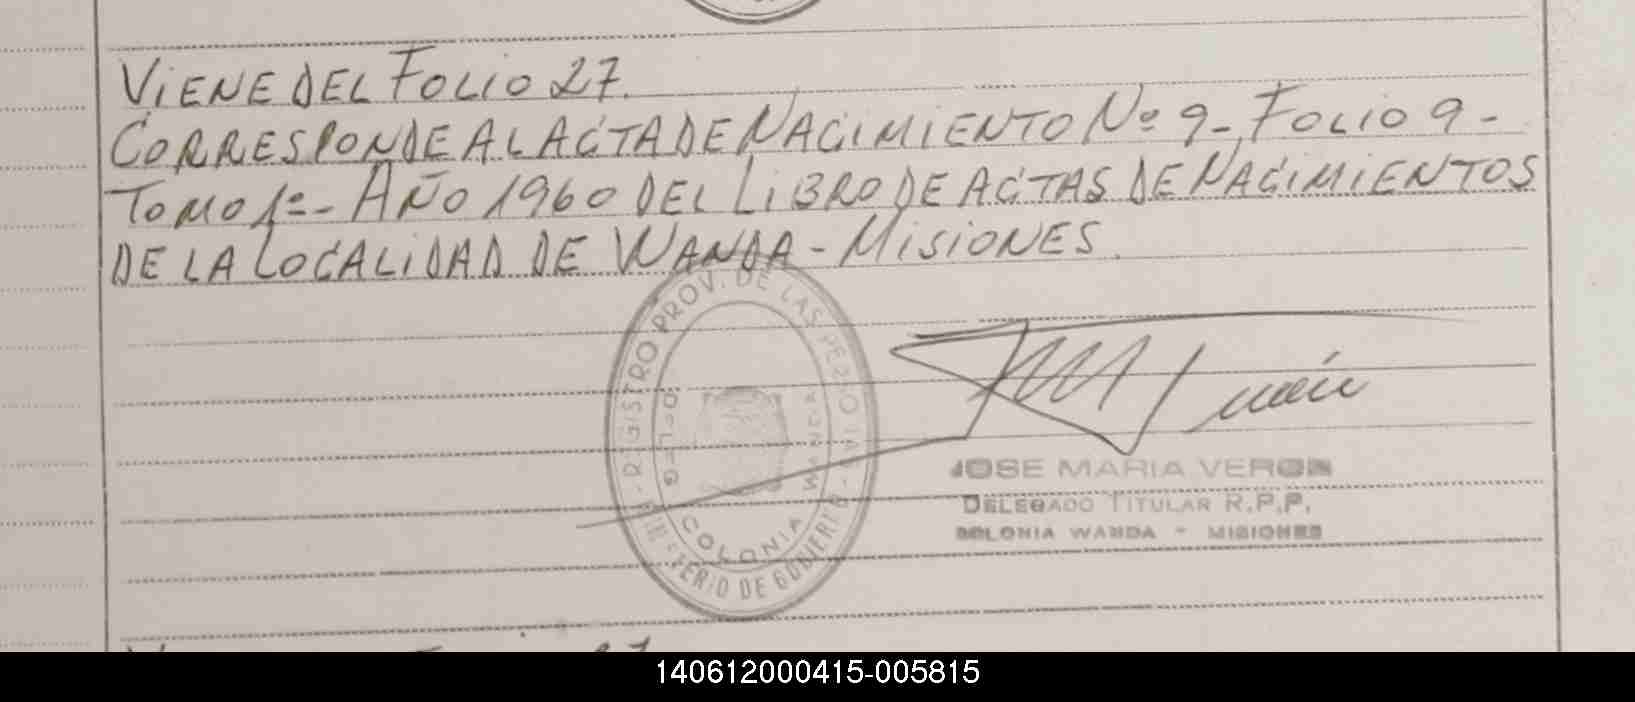 VIENE DEL FOLIO 27.
CORRESPONDE AL ACTA DE NACIMIENTO Nº 9 - FOLIO 9 -
TOMO 1º - AÑO 1960 DEL LIBRO DE ACTAS DE NACIMIENTOS
DE LA LOCALIDAD DE WANDA - MISIONES.
REGISTRO PROV. DE LAS PERSONAS
DELEG
WANDA
COLONIA
MINISTERIO DE GOBIERNO
JOSE MARIA VERON
DELEGADO TITULAR R.P.P.
COLONIA WANDA - MISIONES
140612000415-005815